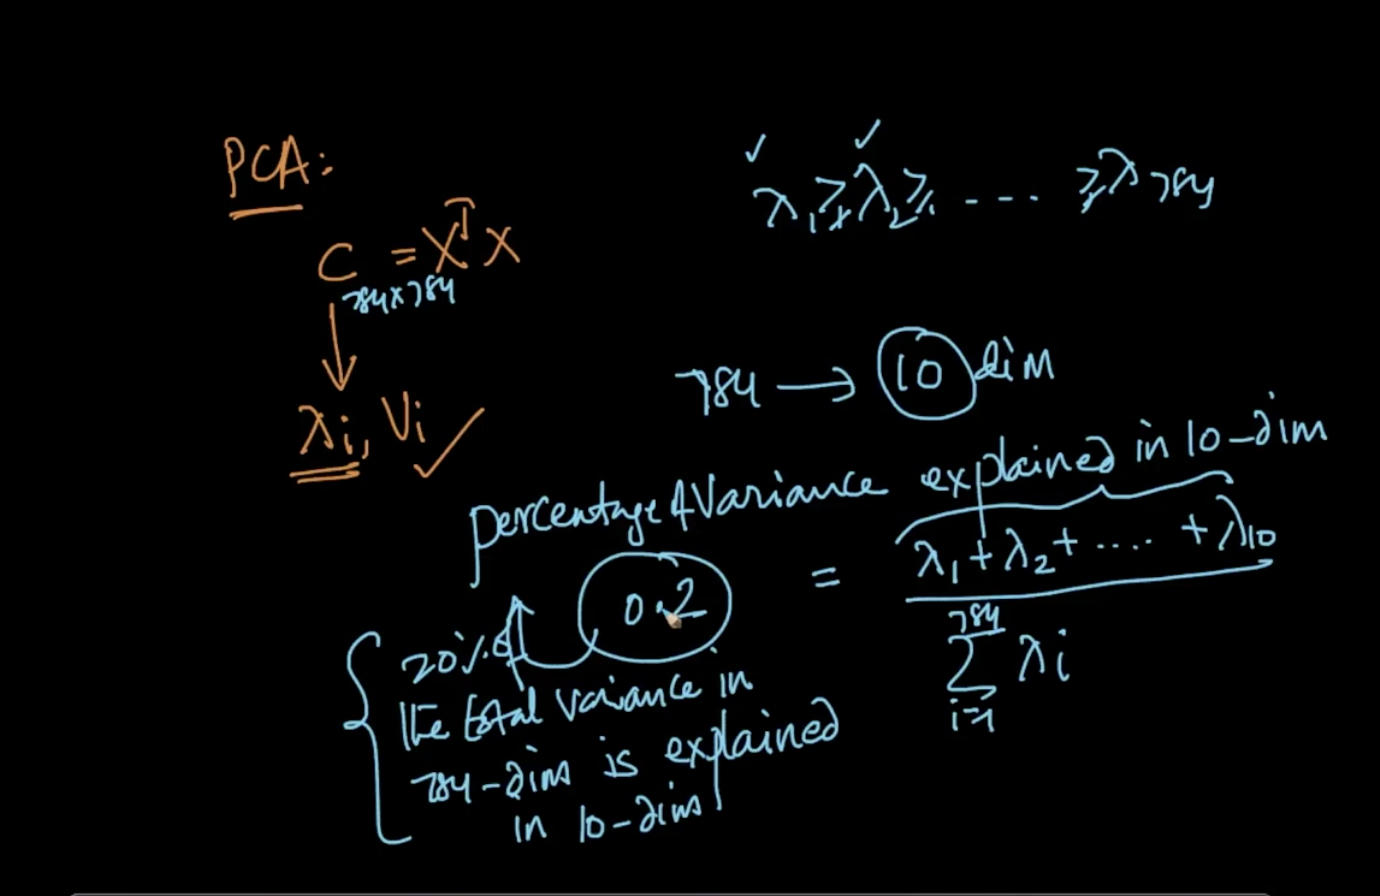 PCA:
C = XᵀX
784x784
λi, Vi ✓
✓ ✓
λ₁ ≥ λ₂ ≥ ---- ≥ λ784
784 → 10 dim
percentage of Variance explained in 10-dim
0.2 = λ₁+λ₂+ .... +λ10
784
Σ λi
i=1
20% of
the total variance in
784-dims is explained
in 10-dims